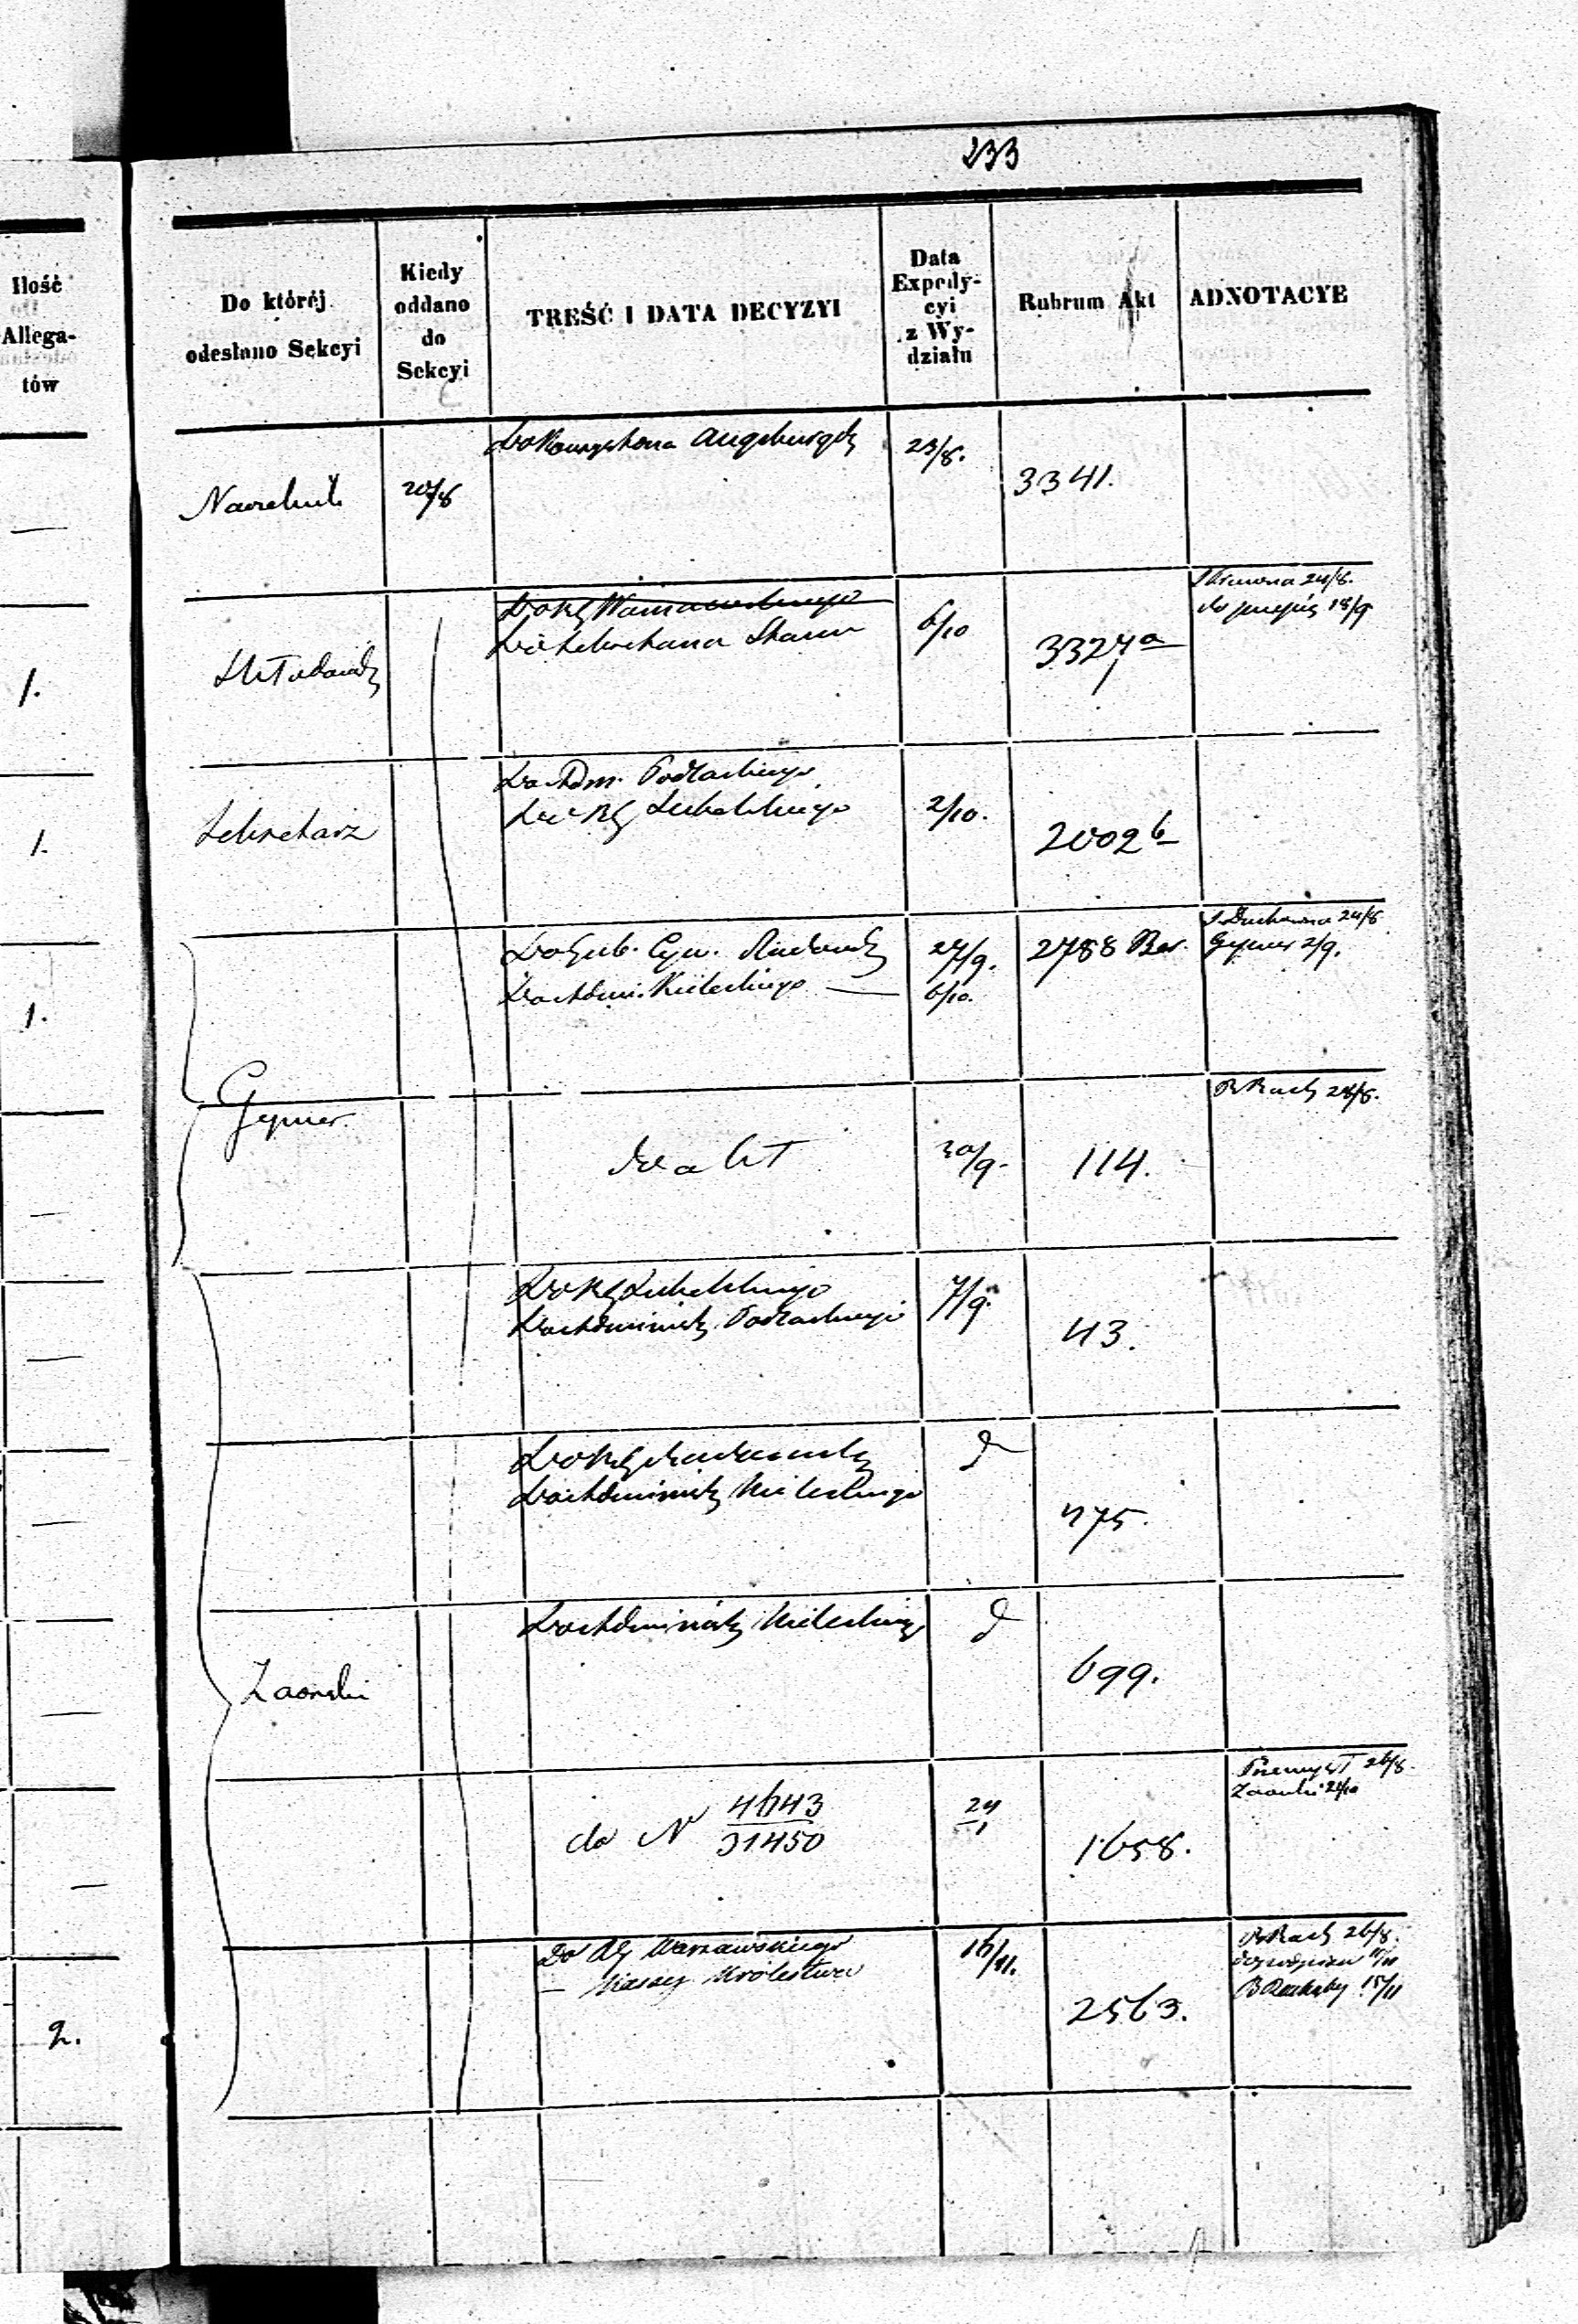 233
Ilość
Allega-
tów
Do której
odesłano Sekcyi
Kiedy
oddano
do
Sekcyi
TREŚĆ I DATA DECYZYI
Data
Expedy-
cyi
z Wy-
działu
Rubrum Akt
ADNOTACYE
—
Naczelnik
20/8
Do Konsystorza Augsburgsk
23/8.
3341.
1.
Do RG Warszawskiego
Do Sekretarza Stanu
6/10
3327a
24/8.
18/9
1.
Sekretarz
Do Adm. Podlaskiego
Do RG Lubelskiego
2/10.
2002b
1.
Do Gub. Cyw. Radomsk
Do Admi. Kieleckiego —
27/9.
6/10.
2788 Rad.
Duchowna 24/8
Geyner 2/9.
—
Geyner
do akt
30/9.
114.
24/8.
—
Do RG Lubelskiego
Do Administr Podlaskiego
7/9.
43.
—
Do RG Radomsk
Do Administr Kieleckiego
d
475.
—
Zaorski
Do Administr Kieleckieg
d
699.
—
do N 4643
31450
24
1
1658.
Przemysł 26/8.
Zaorski 24/10
2.
Do RG Warszawskiego
— Kassy Królestwa
16/11.
2563.
26/8.
15/11